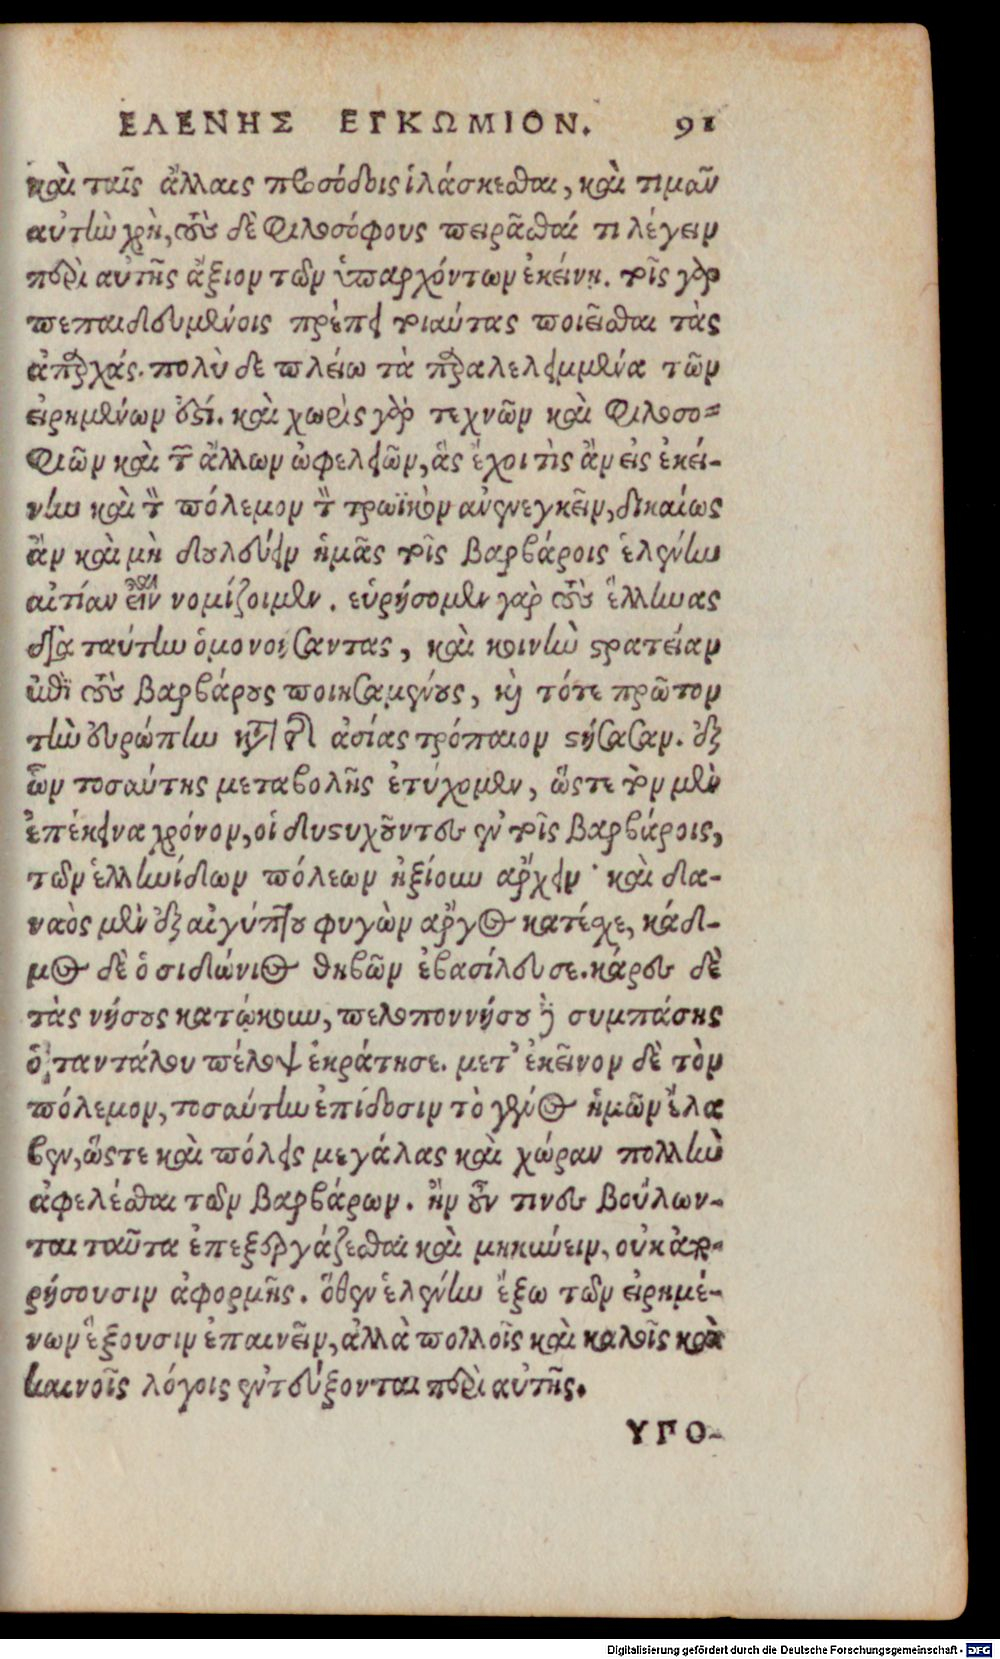 ΕΛΕΝΗΣ ΕΓΚΩΜΙΟΝ. 91
καὶ ταῖς ἄλλαις προσόδοις ἱλάσκεσθαι, καὶ τιμᾶν
αὐτὴν χρὴ, τοὺς δὲ φιλοσόφους πειρᾶσθαί τι λέγειν
περὶ αὐτῆς ἄξιον τῶν ὑπαρχόντων ἐκείνῃ. τοῖς γὰρ
πεπαιδευμένοις πρέπει τοιαύτας ποιεῖσθαι τὰς
ἀπαρχάς. πολὺ δὲ πλείω τὰ παραλελειμμένα τῶν
εἰρημένων ἐστί. καὶ χωρὶς γὰρ τεχνῶν καὶ φιλοσο-
φιῶν καὶ τῶν ἄλλων ὠφελειῶν, ἃς ἔχοι τὶς ἂν εἰς ἐκεί-
νην καὶ τὸν πόλεμον τὸν τρωϊκὸν ἀνενεγκεῖν, δικαίως
ἂν καὶ μὴ δουλεύειν ἡμᾶς τοῖς βαρβάροις ἑλένην
αἰτίαν εἶναι νομίζοιμεν. εὑρήσομεν γὰρ τοὺς ἕλληνας
διὰ ταύτην ὁμονοήσαντας, καὶ κοινὴν στρατείαν
ἐπὶ τοὺς βαρβάρους ποιησαμένους, καὶ τότε πρῶτον
τὴν εὐρώπην κατὰ τῆς ἀσίας τρόπαιον στήσασαν. ἐξ
ὧν τοσαύτης μεταβολῆς ἐτύχομεν, ὥστε τὸν μὲν
ἐπέκεινα χρόνον, οἱ δυστυχοῦντες ἐν τοῖς βαρβάροις,
τῶν ἑλληνίδων πόλεων ἠξίουν ἄρχειν· καὶ δα-
ναὸς μὲν ἐξ αἰγύπτου φυγὼν ἄργος κατέσχε, κάδ-
μος δὲ ὁ σιδώνιος θηβῶν ἐβασίλευσε. κάρες δὲ
τὰς νήσους κατῴκουν, πελοποννήσου δὲ συμπάσης
ὁ ταντάλου πέλοψ ἐκράτησε. μετ’ ἐκεῖνον δὲ τὸν
πόλεμον, τοσαύτην ἐπίδοσιν τὸ γένος ἡμῶν ἔλα
βεν, ὥστε καὶ πόλεις μεγάλας καὶ χώραν πολλὴν
ἀφελέσθαι τῶν βαρβάρων. ἢν οὖν τινες βούλων-
ται ταῦτα ἐπεξεργάζεσθαι καὶ μηκύνειν, οὐκ ἀπο-
ρήσουσιν ἀφορμῆς. ὅθεν ἑλένην ἔξω τῶν εἰρημέ-
νων ἕξουσιν ἐπαινεῖν, ἀλλὰ πολλοῖς καὶ καλοῖς καὶ
καινοῖς λόγοις ἐντεύξονται περὶ αὐτῆς.
ΥΠΟ-
Digitalisierung gefördert durch die Deutsche Forschungsgemeinschaft - DFG